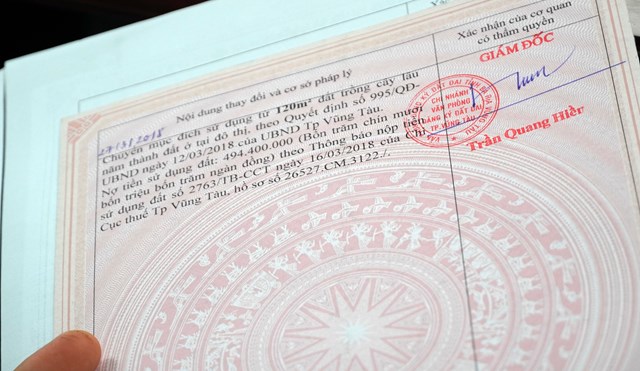 Nội dung thay đổi và cơ sở pháp lý
Xác nhận của cơ quan
có thẩm quyền
27/3/2018
Chuyển mục đích sử dụng từ 120m² đất trồng cây lâu
năm thành đất ở tại đô thị, theo Quyết định số 995/QĐ-
UBND ngày 12/03/2018 của UBND Tp Vũng Tàu.
Nợ tiền sử dụng đất: 494.400.000 (Bốn trăm chín mươi
bốn triệu bốn trăm ngàn đồng) theo Thông báo nộp tiền
sử dụng đất số 2763/TB-CCT ngày 16/03/2018 của Chi
Cục thuế Tp Vũng Tàu, hồ sơ số 26527.CM.3122./.
GIÁM ĐỐC
CHI NHÁNH
VĂN PHÒNG
ĐĂNG KÝ ĐẤT ĐAI
TP.VŨNG TÀU
Trần Quang Hiền